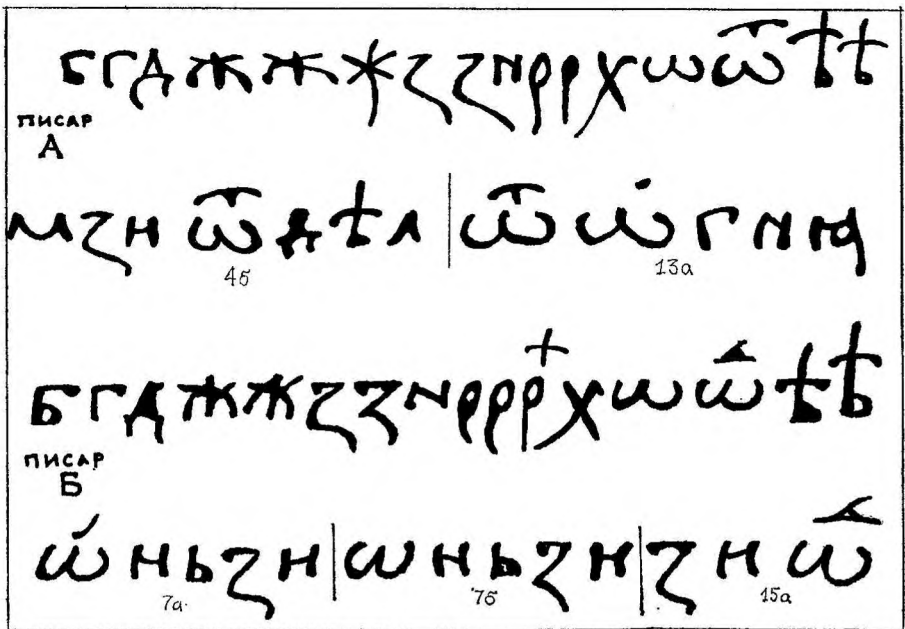 Б Г Д Ж Ж Ж Ꙁ Ꙁ N Р Р Х Ѡ Ѿ Ѣ Ѣ
ПИСАР
А
М Ꙁ Н Ѿ Д Ѣ Л | Ѿ Ѡ Г N Ю
4б 13а
Б Г Д Ж Ж Ꙁ Ꙁ N Р Р Р Х Ѡ Ѡ Ѣ Ѣ
ПИСАР
Б
Ѡ Н Ь Ꙁ Н | Ѡ Н Ь Ꙁ Н | Ꙁ Н Ѡ
7а 7б 15а